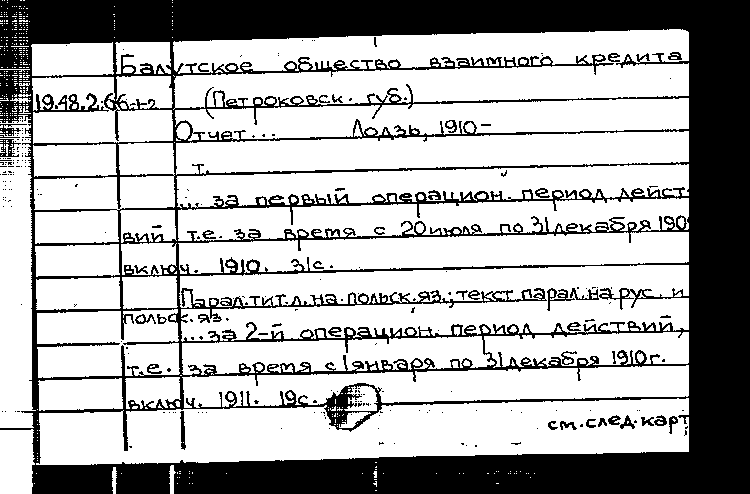 Балутское общество взаимного кредита
19.48.2.66:1-2 (Петроковск. губ.)
Отчет... Лодзь, 1910-
т.
... за первый операцион. период дейст-
вий, т.е. за время с 20 июля по 31 декабря 1909
включ. 1910. 31с.
Парал. тит. л. на польск. яз.; текст парал. на рус. и
польск. яз.
...за 2-й операцион. период действий,
т.е. за время с 1 января по 31 декабря 1910 г.
включ. 1911. 19с.
см. след. карт